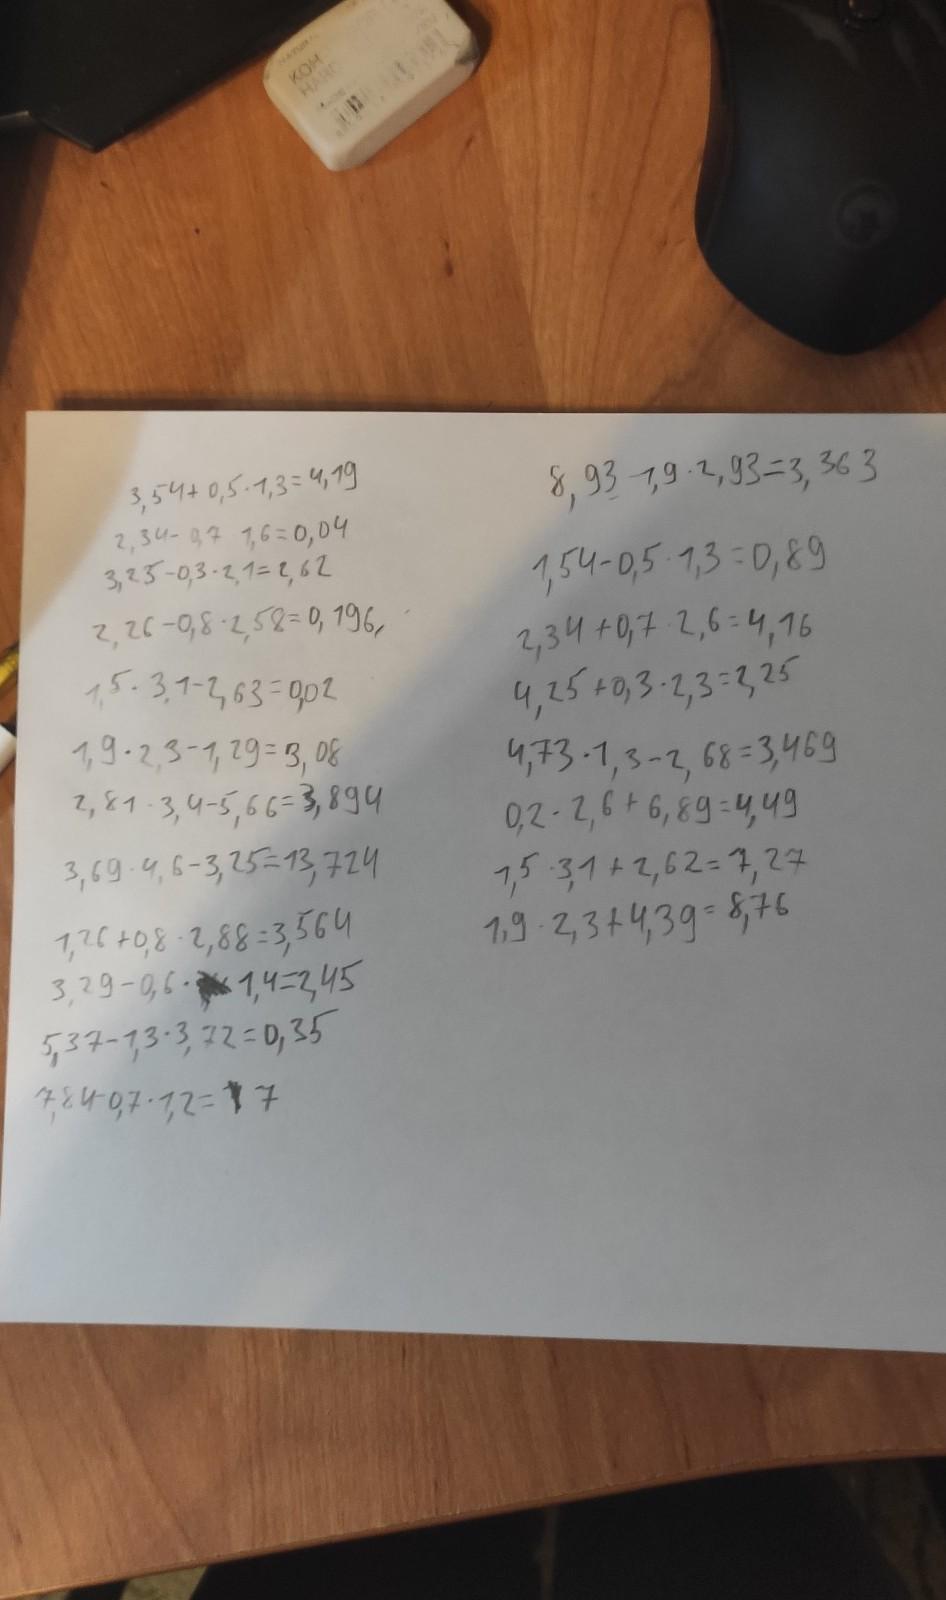 KOH
HARD
3,54+0,5·1,3=4,19
2,34-0,7 1,6=0,04
3,25-0,3·2,1=2,62
2,26-0,8·2,58=0,196
1,5·3,1-2,63=0,02
1,9·2,3-1,29=3,08
2,81·3,4-5,66=3,894
3,69·4,6-3,25=13,724
1,26+0,8·2,88=3,564
3,29-0,6·1,4=2,45
5,37-1,3·3,72=0,35
7,84-0,7·1,2=7
8,93-1,9·2,93=3,363
1,54-0,5·1,3=0,89
2,34+0,7·2,6=4,16
4,25+0,3·2,3=2,25
4,73·1,3-2,68=3,469
0,2·2,6+6,89=4,49
1,5·3,1+2,62=7,27
1,9·2,3+4,39=8,76